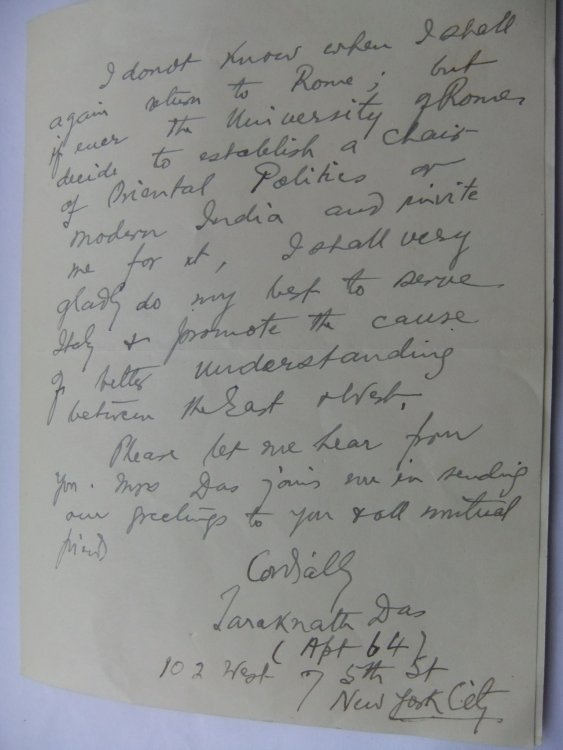 I donot know when I shall
again return to Rome; but
if ever the University of Rome
decide to establish a chair
of Oriental Politics or
modern India and invite
me for it, I shall very
gladly do my best to serve
Italy & promote the cause
of better understanding
between the East & West.
Please let me hear from
you. Mrs Das joins me in sending
our greetings to you & all mutual
friends
Cordially
Taraknath Das
(Apt 64)
102 West 75th St
New York City